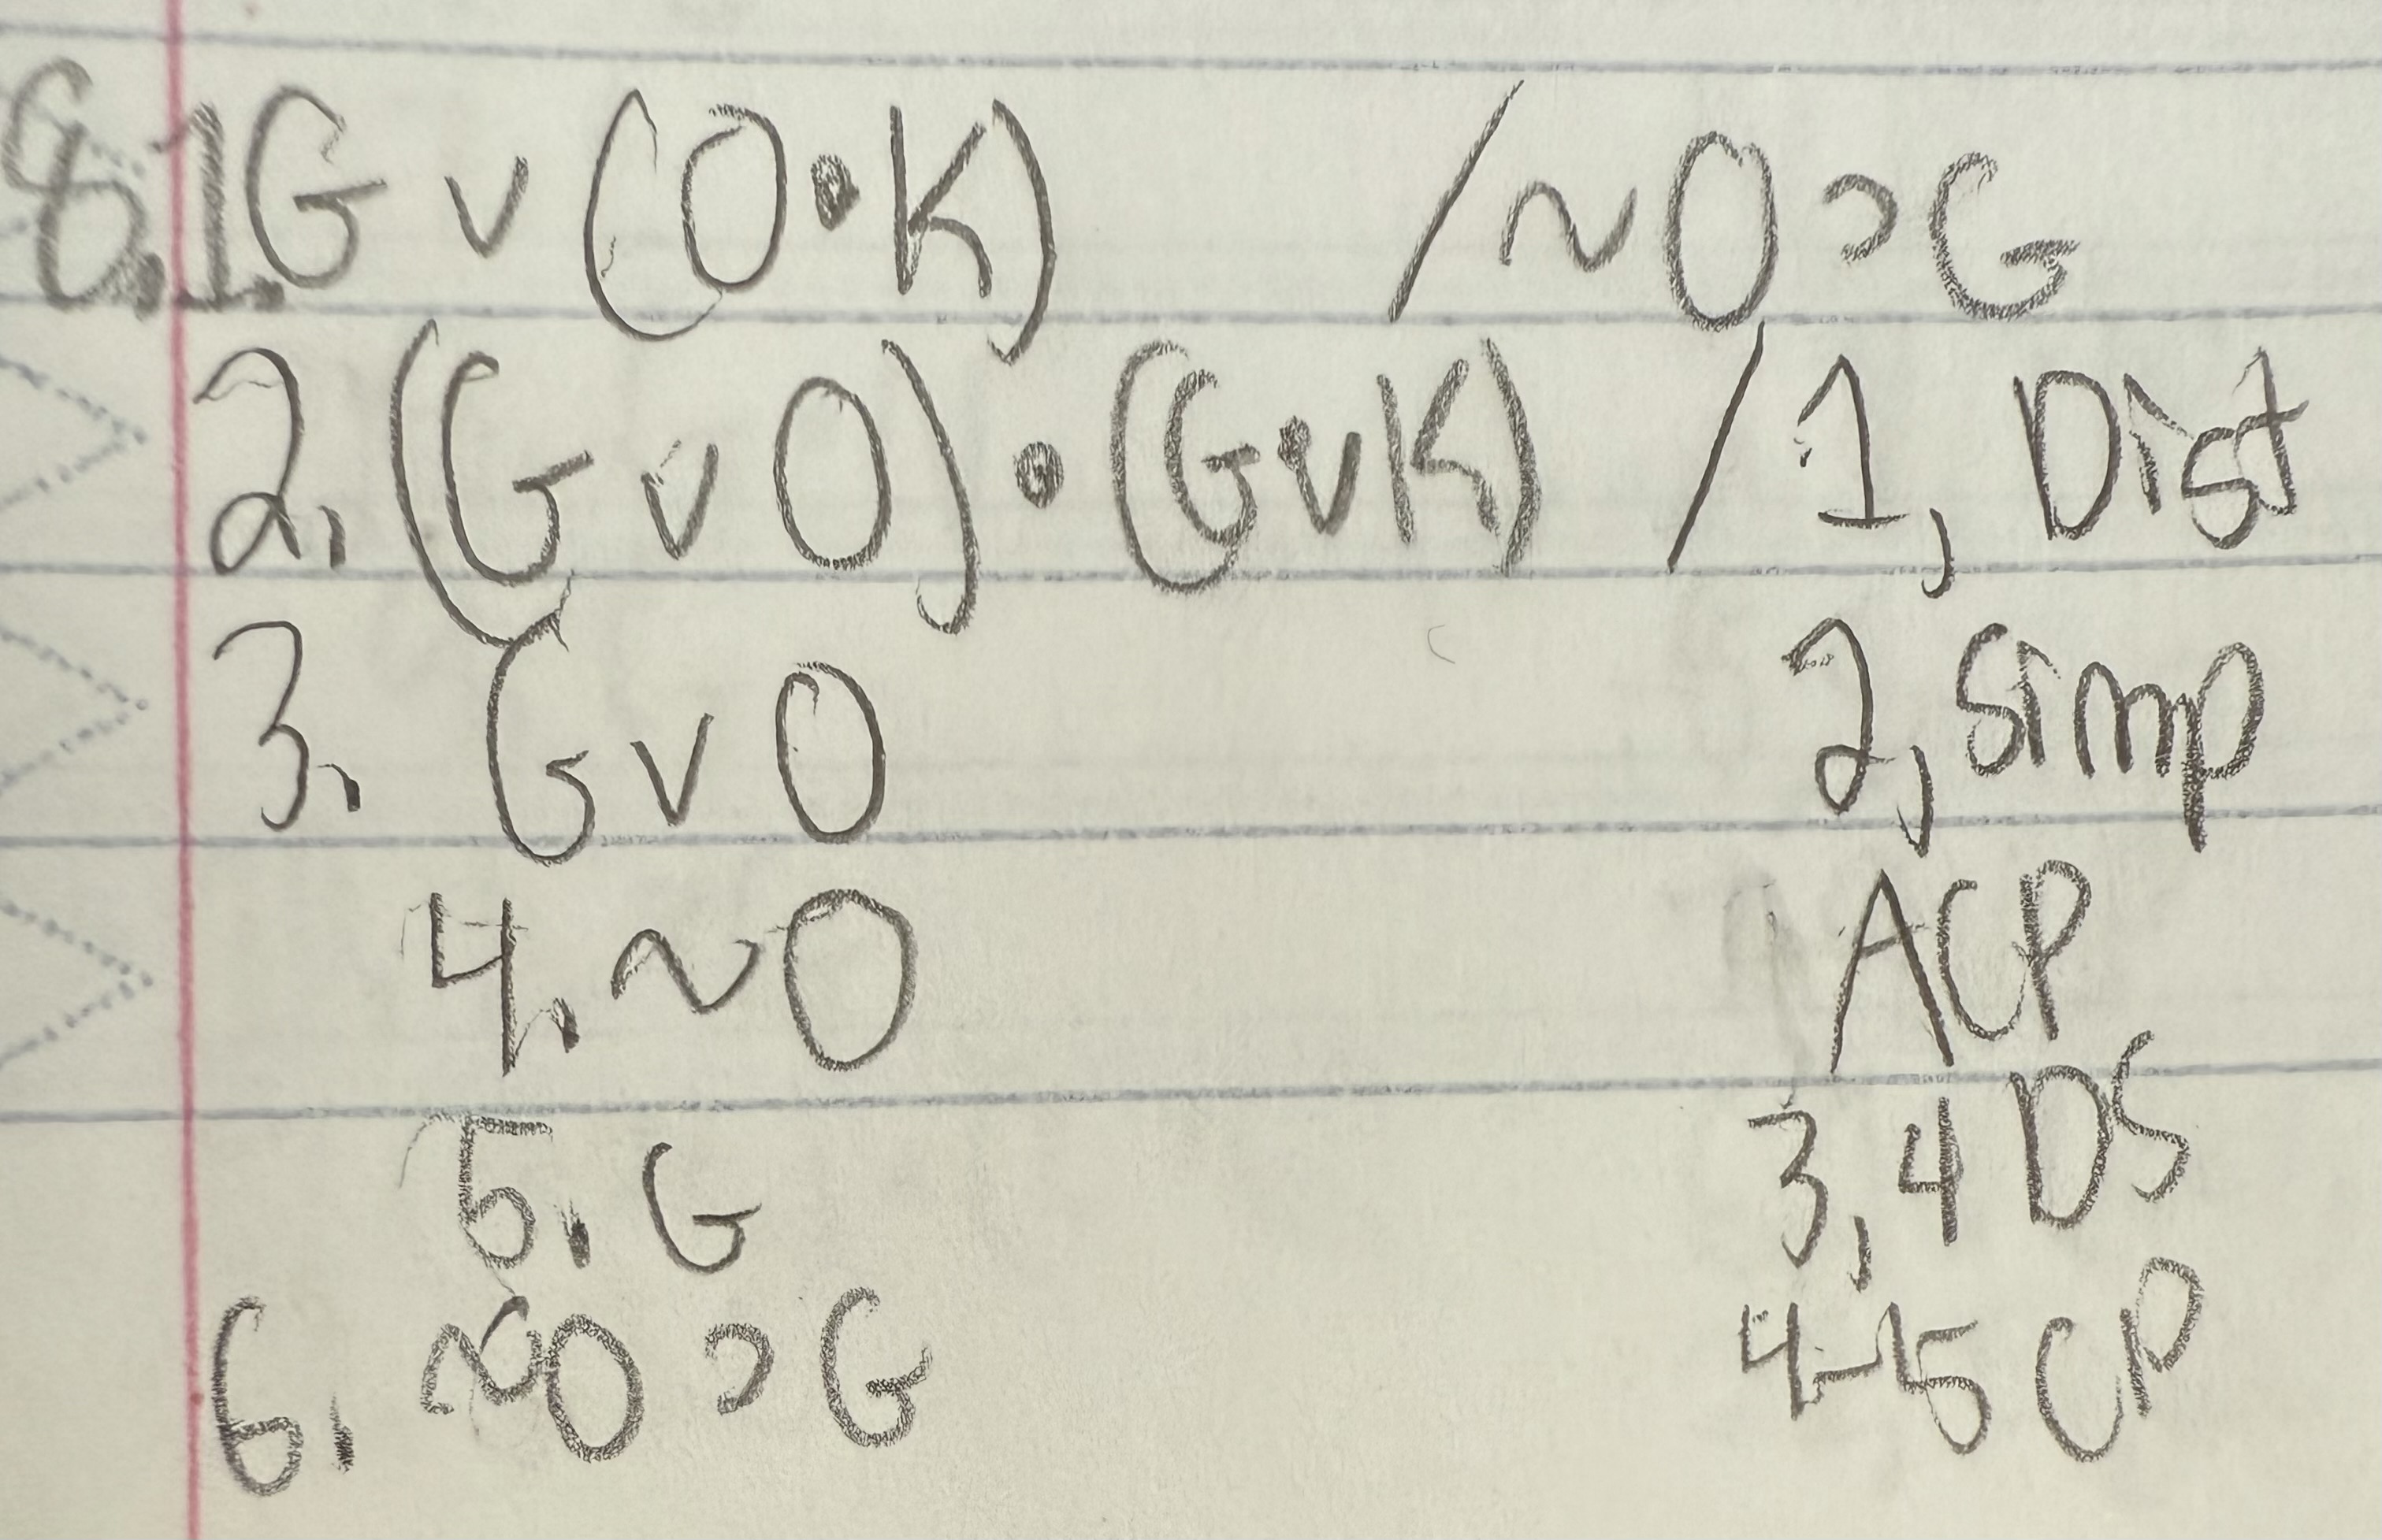 8. 1. G v (O • K) / ~O ⊃ G
2. (G v O) • (G v K) / 1, Dist
3. G v O 2, Simp
4. ~O ACP
5. G 3, 4 DS
6. ~O ⊃ G 4-5 CP